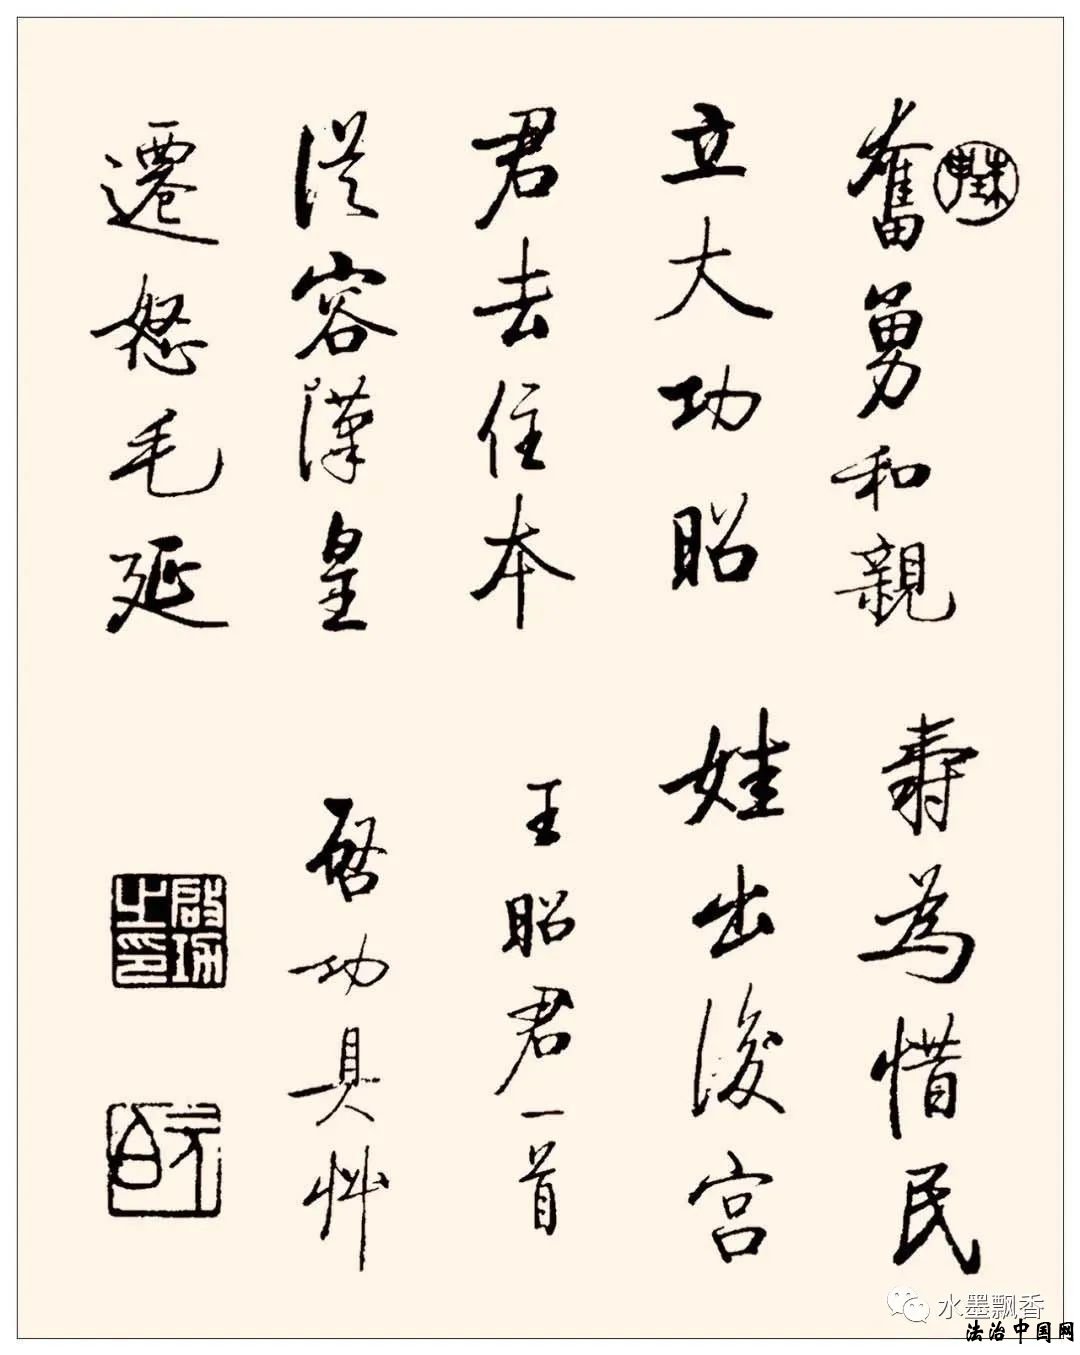 奮勇和親
立大功昭
君去住本
從容漢皇
遷怒毛延
壽為惜民
娃出後宮
王昭君一首
啓功具艸
啓功之印
元白
水墨飘香
法治中国网